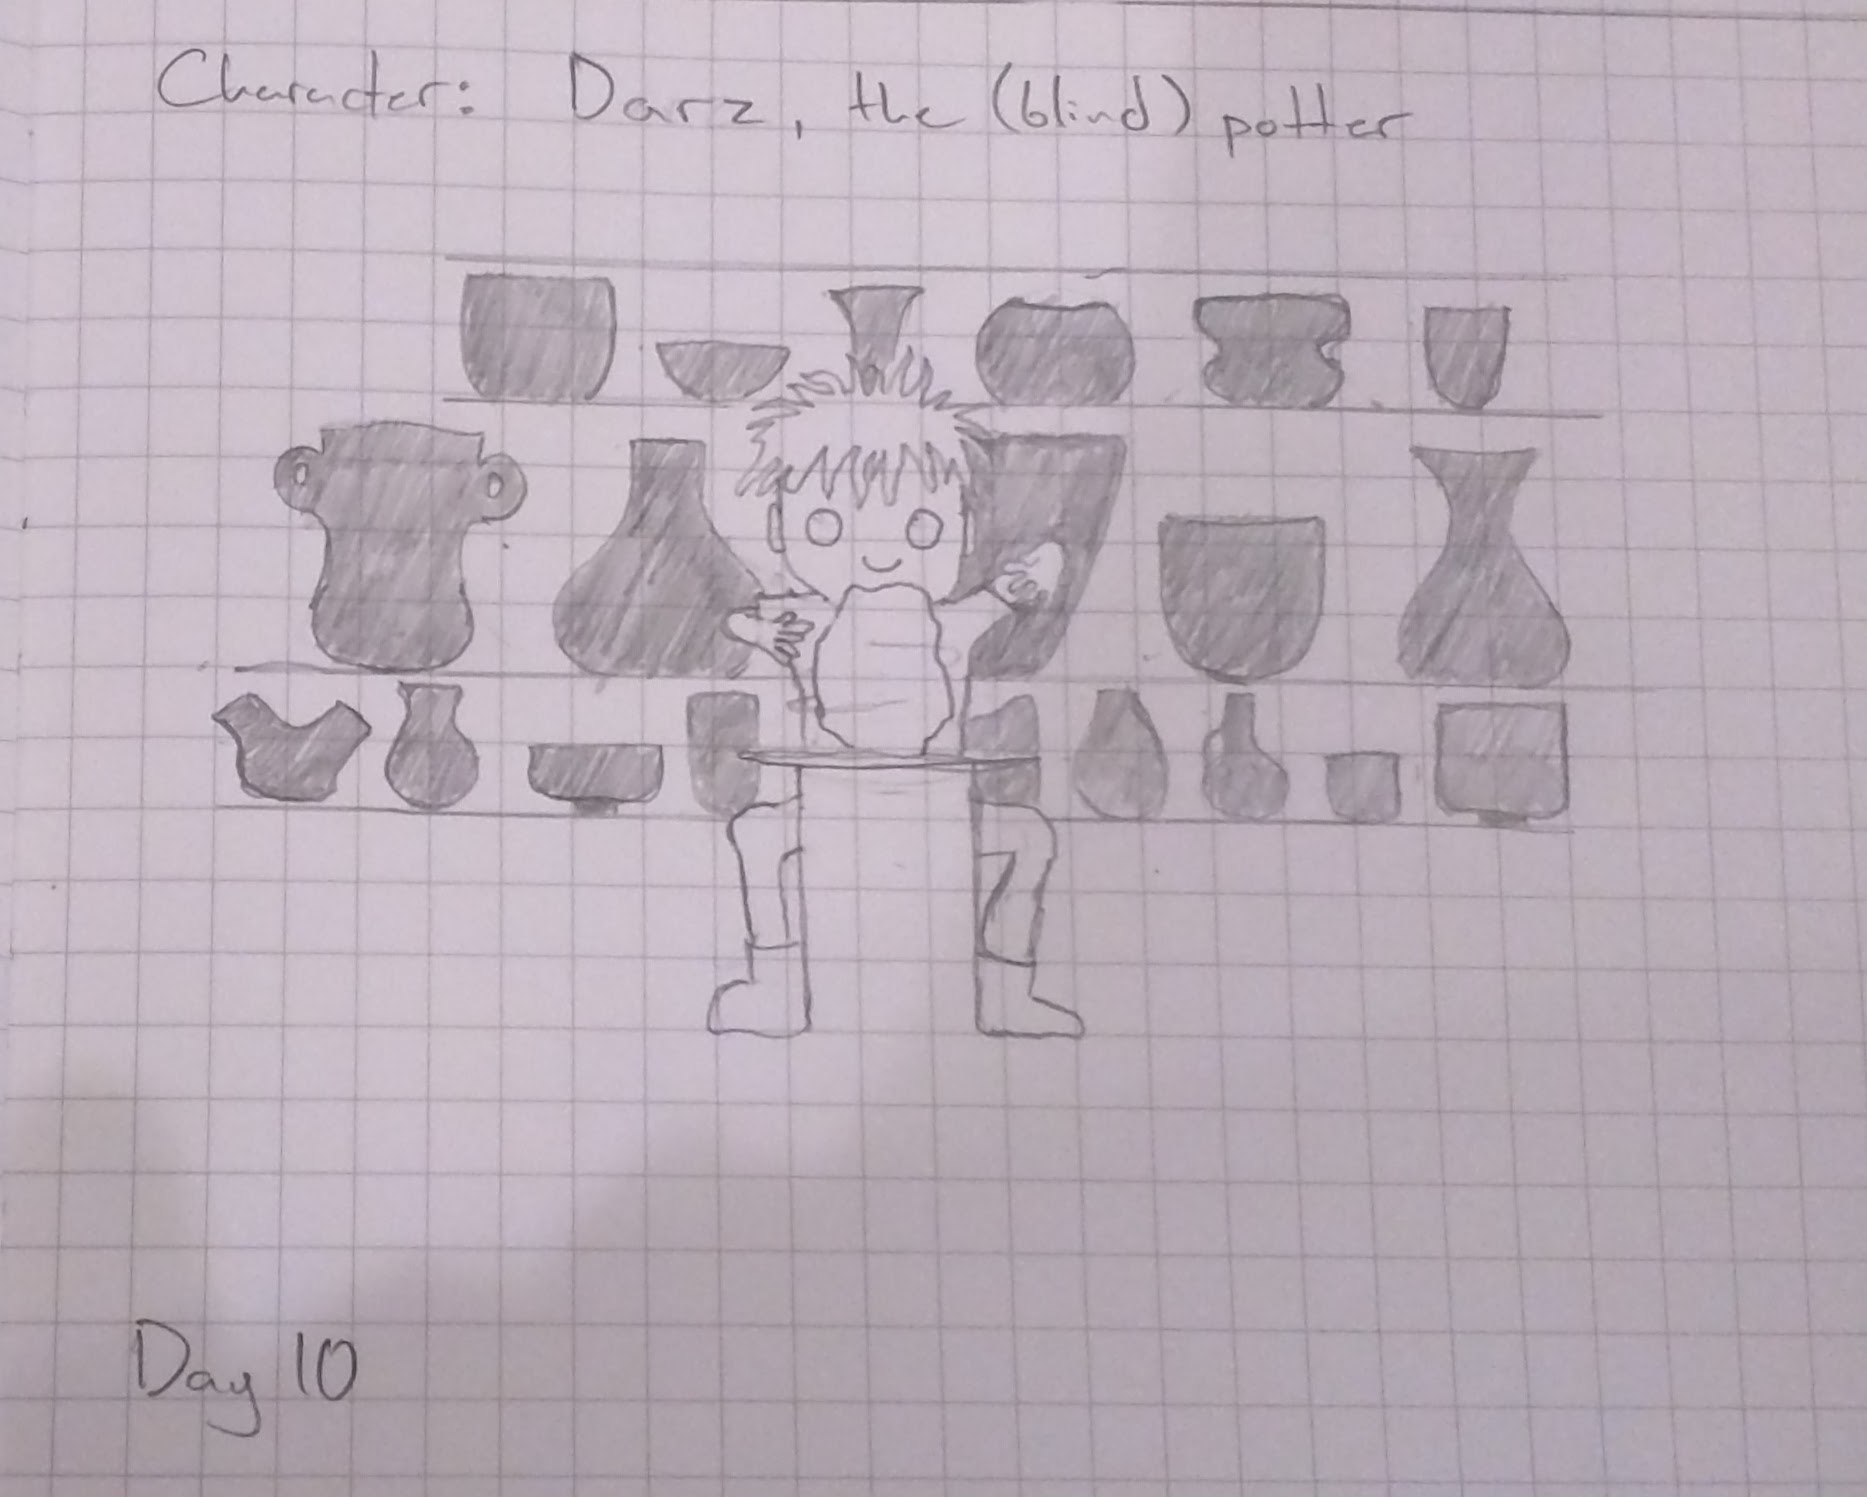 Character: Darz, the (blind) potter
Day 10